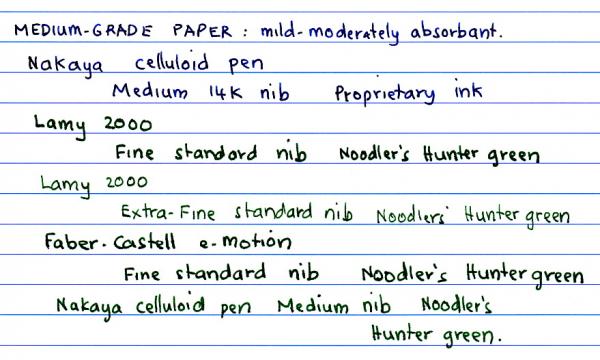 MEDIUM-GRADE PAPER : mild-moderately absorbant.
Nakaya celluloid pen
Medium 14K nib Proprietary ink
Lamy 2000
Fine standard nib Noodler's Hunter green
Lamy 2000
Extra-Fine standard nib Noodlers' Hunter green
Faber-Castell e-motion
Fine standard nib Noodler's Hunter green
Nakaya celluloid pen Medium nib Noodler's
Hunter green.